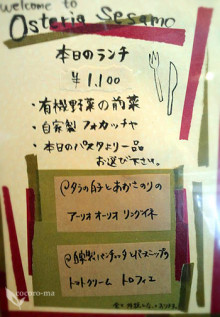 welcome to
Osteria Sesamo
本日のランチ
¥1,100
・有機野菜の前菜
・自家製フォカッチャ
・本日のパスタより一品
お選び下さい。
タラの白子とあおさのりの
アーリオオーリオ リングイネ
自家製パンチェッタとパースニップの
トマトクリーム トロフィエ
cocoro-ma